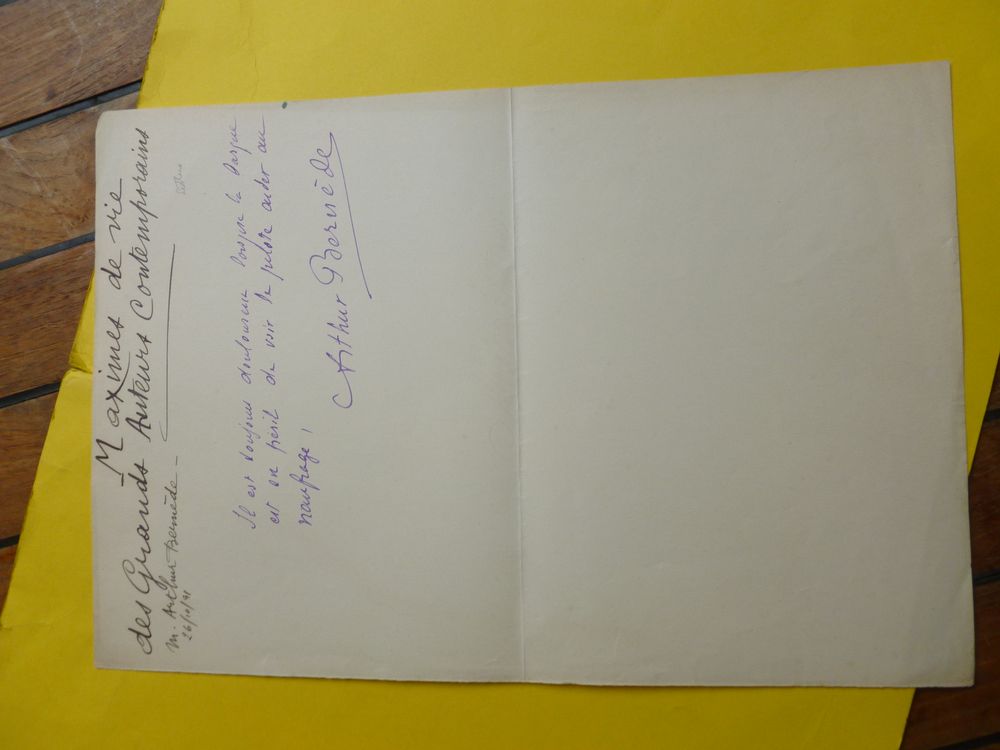 Maximes de vie
des Grands Auteurs Contemporains
M. Arthur Bernède –
Il est toujours douloureux lorsque la barque
est en péril de voir le pilote aider au
naufrage !
Arthur Bernède